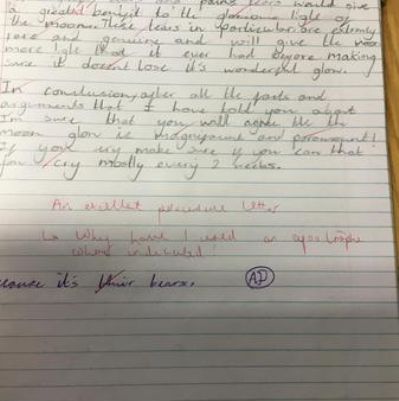 and pains tears would give
a greater benefit to the glorious light of
the moon. These tears in particular are extremly
rare and genuine and will give the moon
more light that it ever had before making
sure it doesnt lose it's wonderful glow.
In conclusion, after all the facts and
arguments that I have told you about
Im sure that you will agree the the
moon glow is magnificent and paramount!
If you cry make sure if you can that
you cry mostly every 2 weeks.
An persuasive letter
↳ Why have I used an apostrophe
where indicated?
because it's their bears.
AD